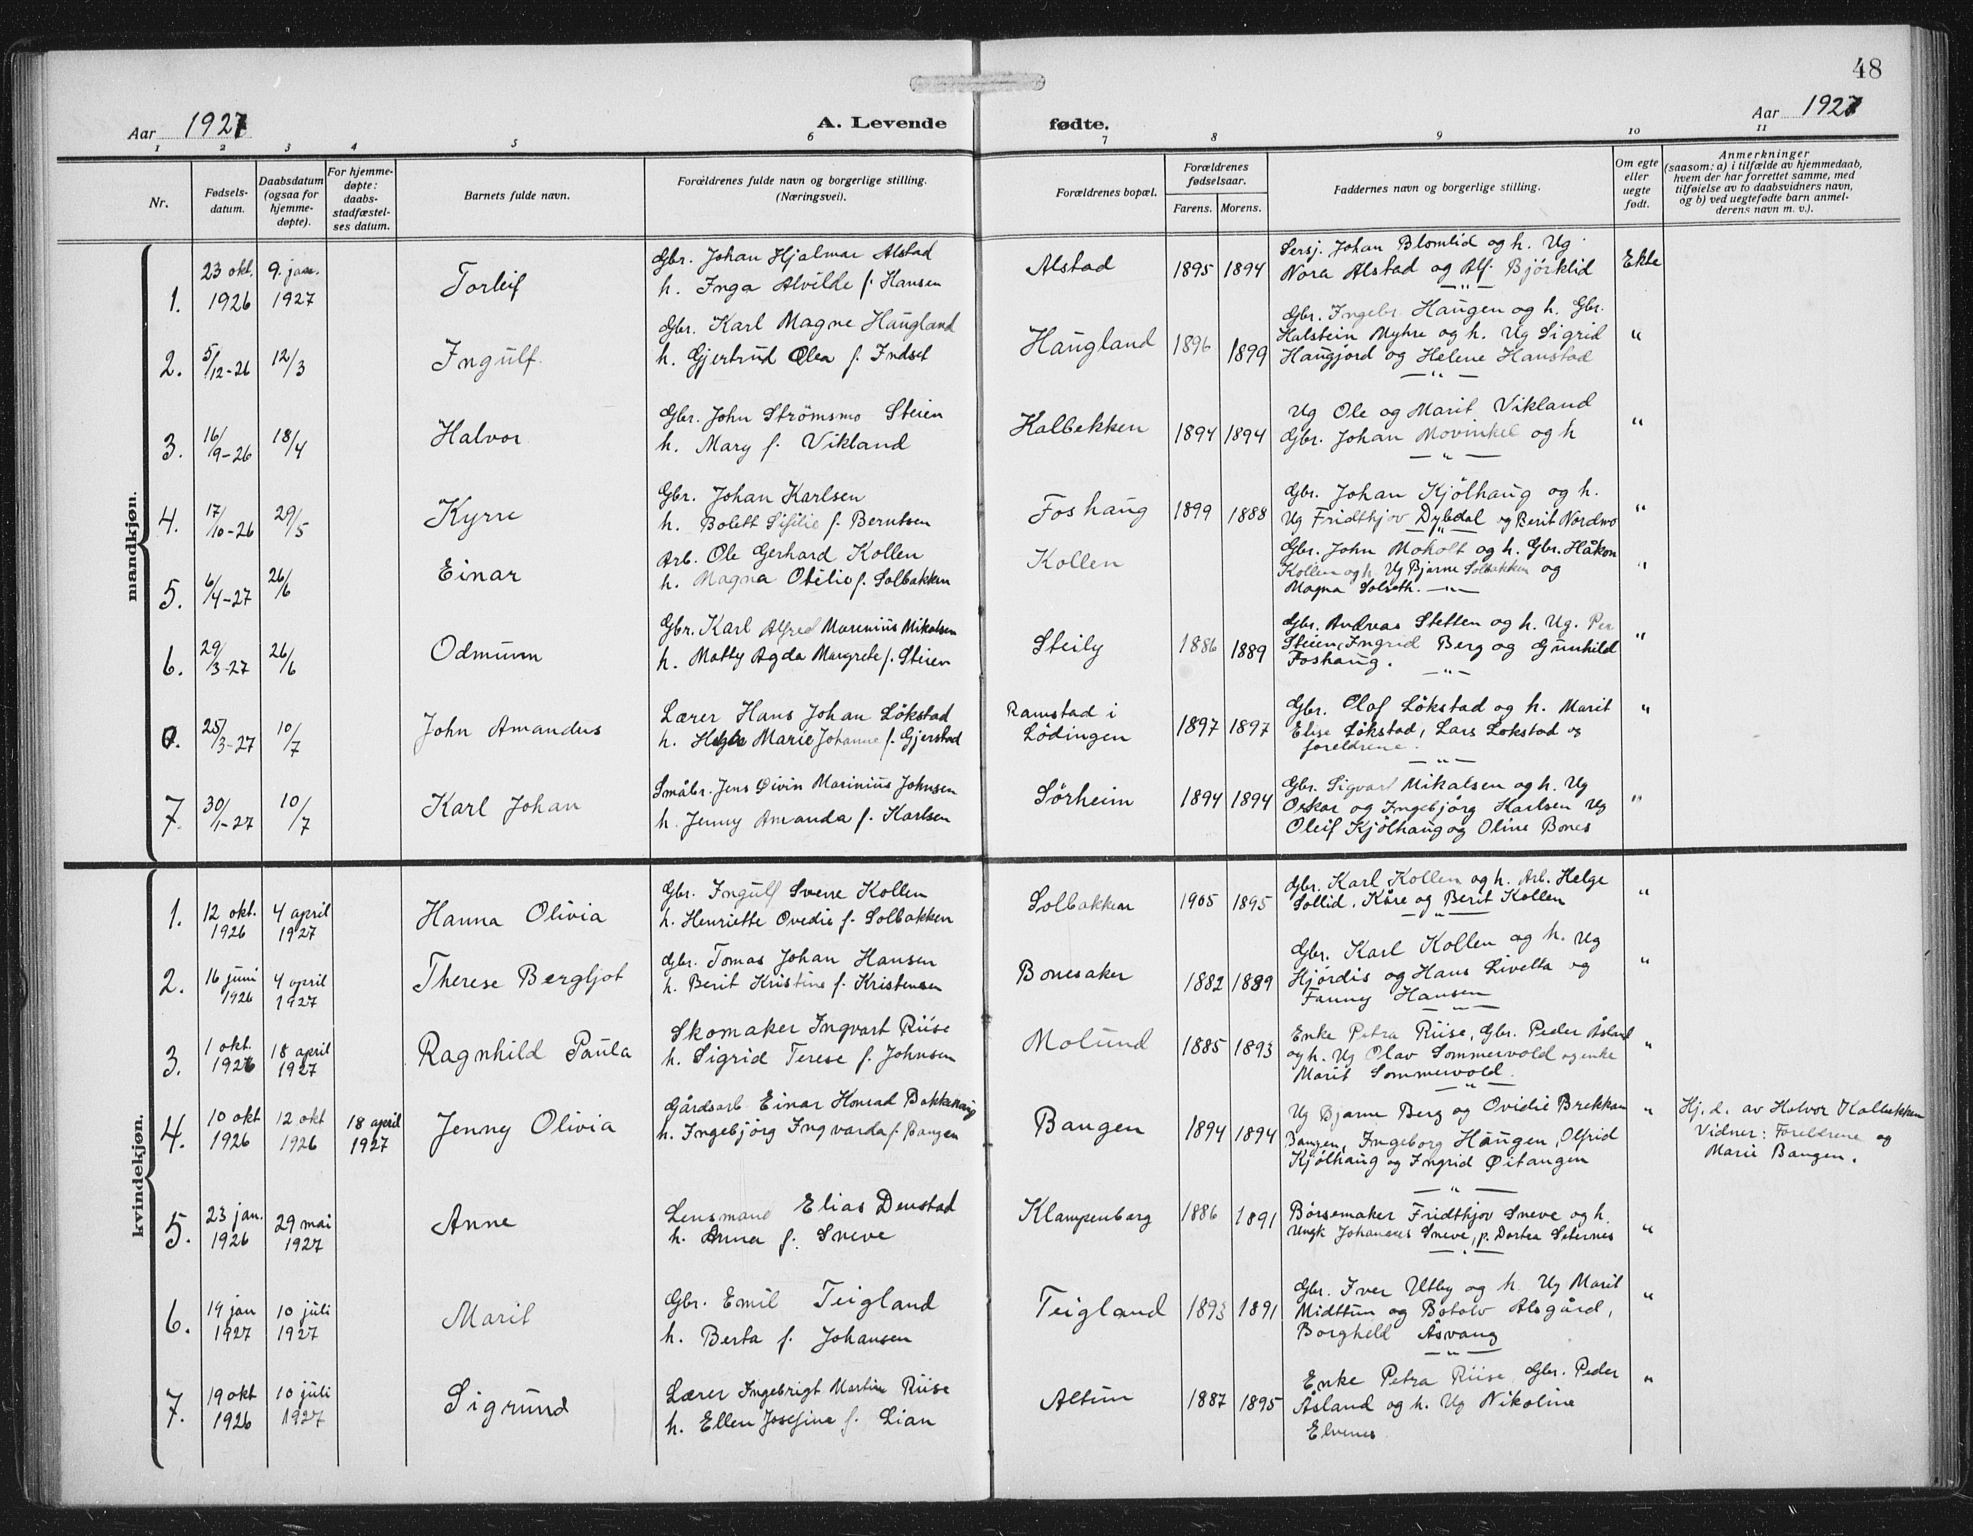 48
Aar 1927
A. Levende fødte.
Aar 1927
1 2 3 4 5 6 7 8 9 10 11
Nr.
Fødsels-
datum.
Daabsdatum
(ogsaa for
hjemme-
døpte).
For hjemme-
døpte:
daabs-
stadfæstel-
ses datum.
Barnets fulde navn.
Forældrenes fulde navn og borgerlige stilling.
(Næringsvei).
Forældrenes bopæl.
Forældrenes
fødselsaar.
Farens. Morens.
Faddernes navn og borgerlige stilling.
Om egte
eller
uegte
født.
Anmerkninger
(saasom: a) i tilfælde av hjemmedaab,
hvem der har forrettet samme, med
tilføielse av to daabsvidners navn,
og b) ved uegtefødte barn anmel-
derens navn m. v.).
mandkjøn.
1. 23 okt. 1926 9. jan. 1927 Torleif
Gbr. Johan Hjalmar Alstad
h. Inga Alvilde f. Hansen
Alstad 1895 1894
Sersj. Johan Blomlid og h. Ug
Nora Alstad og Alf. Bjørklid
Ekte
2. 5/12-26 12/3 Ingulf
Gbr. Karl Magne Haugland
h. Gjertrud Olea f. Indset
Haugland 1896 1899
Gbr. Ingebr. Haugen og h. Gbr.
Halstein Myhre og h. Ug Sigrid
Haugjord og Helene Hanstad
"
3. 16/9-26 18/4 Halvor
Gbr. John Strømsmo Steien
h. Mary f. Vikland
Kalbekken 1894 1894
Ug Ole og Marit Vikland
Gbr. Johan Movinkel og h
"
4. 17/10-26 29/5 Kyrre
Gbr. Johan Karlsen
h. Bolett Sifilie f. Berntsen
Foshaug 1899 1888
Gbr. Johan Kjølhaug og h.
Ug Fridthjov Dybdal og Berit Nordmo
"
5. 6/4-27 26/6 Einar
Arb. Ole Gerhard Kollen
h. Magna Otilie f. Solbakken
Kollen
Gbr. John Moholt og h. Gbr. Håkon
Kollen og h. Ug Bjarne Solbakken og
Magna Solseth.
"
6. 29/3-27 26/6 Odmunn
Gbr. Karl Alfred Marenius Mikalsen
h. Matty Agda Margrete f. Steien
Steily 1886 1889
Gbr. Andreas Stetten og h. Ug. Per
Steien, Ingrid Berg og Gunhild
Foshaug.
"
0. 25/3-27 10/7 John Amandus
Lærer Hans Johan Løkstad
h. Helga Marie Johanne f. Gjerstad
Ramstad i
Lødingen
1897 1897
Gbr. Olaf Løkstad og h. Marit
Elise Løkstad, Lars Løkstad og
foreldrene.
"
7. 30/1-27 10/7 Karl Johan
Småbr. Jens Øivin Marinius Johnsen
h. Jenny Amanda f. Karlsen
Sørheim 1894 1894
Gbr. Sigvart Mikalsen og h. Ug
Oskar og Ingebjørg Karlsen Ug
Oleif Kjølhaug og Oline Bones
"
kvindekjøn.
1. 12 okt. 1926 4 april 1927 Hanna Olivia
Gbr. Ingulf Sverre Kollen
h. Henriette Ovedie f. Solbakken
Solbakken 1905 1895
Gbr. Karl Kollen og h. Arb. Helge
Sollid, Kåre og Berit Kollen
"
2. 16 juni 1926 4 april 1927 Therese Bergljot
Gbr. Tomas Johan Hansen
h. Berit Kristine f. Kristensen
Bonesaker 1882 1889
Gbr. Karl Kollen og h. Ug
Hjørdis og Hans Livelta og
Fanny Hansen
"
3. 1 okt. 1926 18 april 1927 Ragnhild Paula
Skomaker Ingvart Riise
h. Sigrid Terese f. Johnsen
Molund 1885 1893
Enke Petra Riise, Gbr. Peder Åsland
og h. Ug Olav Sommervold og enke
Marit Sommervold.
"
4. 10 okt 1926 12 okt 1926 18 april 1927 Jenny Olivia
Gårdsarb. Einar Konrad Bakkehaug
h. Ingebjørg Ingvarda f. Bangen
Bangen 1894 1894
Ug Bjarne Berg og Ovidie Brekkan
Bangen, Ingeborg Haugen, Olfrid
Kjølhaug og Ingrid Øitangen
"
Hj. d. av Halvor Kalbekken
Vidner: Foreldrene og
Marie Bangen.
5. 23 jan. 1926 29 mai 1927 Anne
Lensmand Elias Denstad
h. Anna f. Sneve
Klampenborg 1886 1891
Børsemaker Fridthjov Sneve og h.
Ungk Johannes Sneve, p. Dortea Seternes
"
6. 19 jan 1927 10 juli 1927 Marit
Gbr. Emil Teigland
h. Berta f. Johansen
Teigland 1893 1891
Gbr. Iver Utby og h. Ug Marit
Midttun og Botolv Alsgård,
Borghild Åsvang
"
7. 19 okt 1926 10 juli 1927 Sigrund
Lærer Ingebrigt Martin Riise
h. Ellen Josefine f. Lian
Altun 1887 1895
Enke Petra Riise, Gbr. Peder
Åsland og h. Ug Nikoline
Elvenes
"